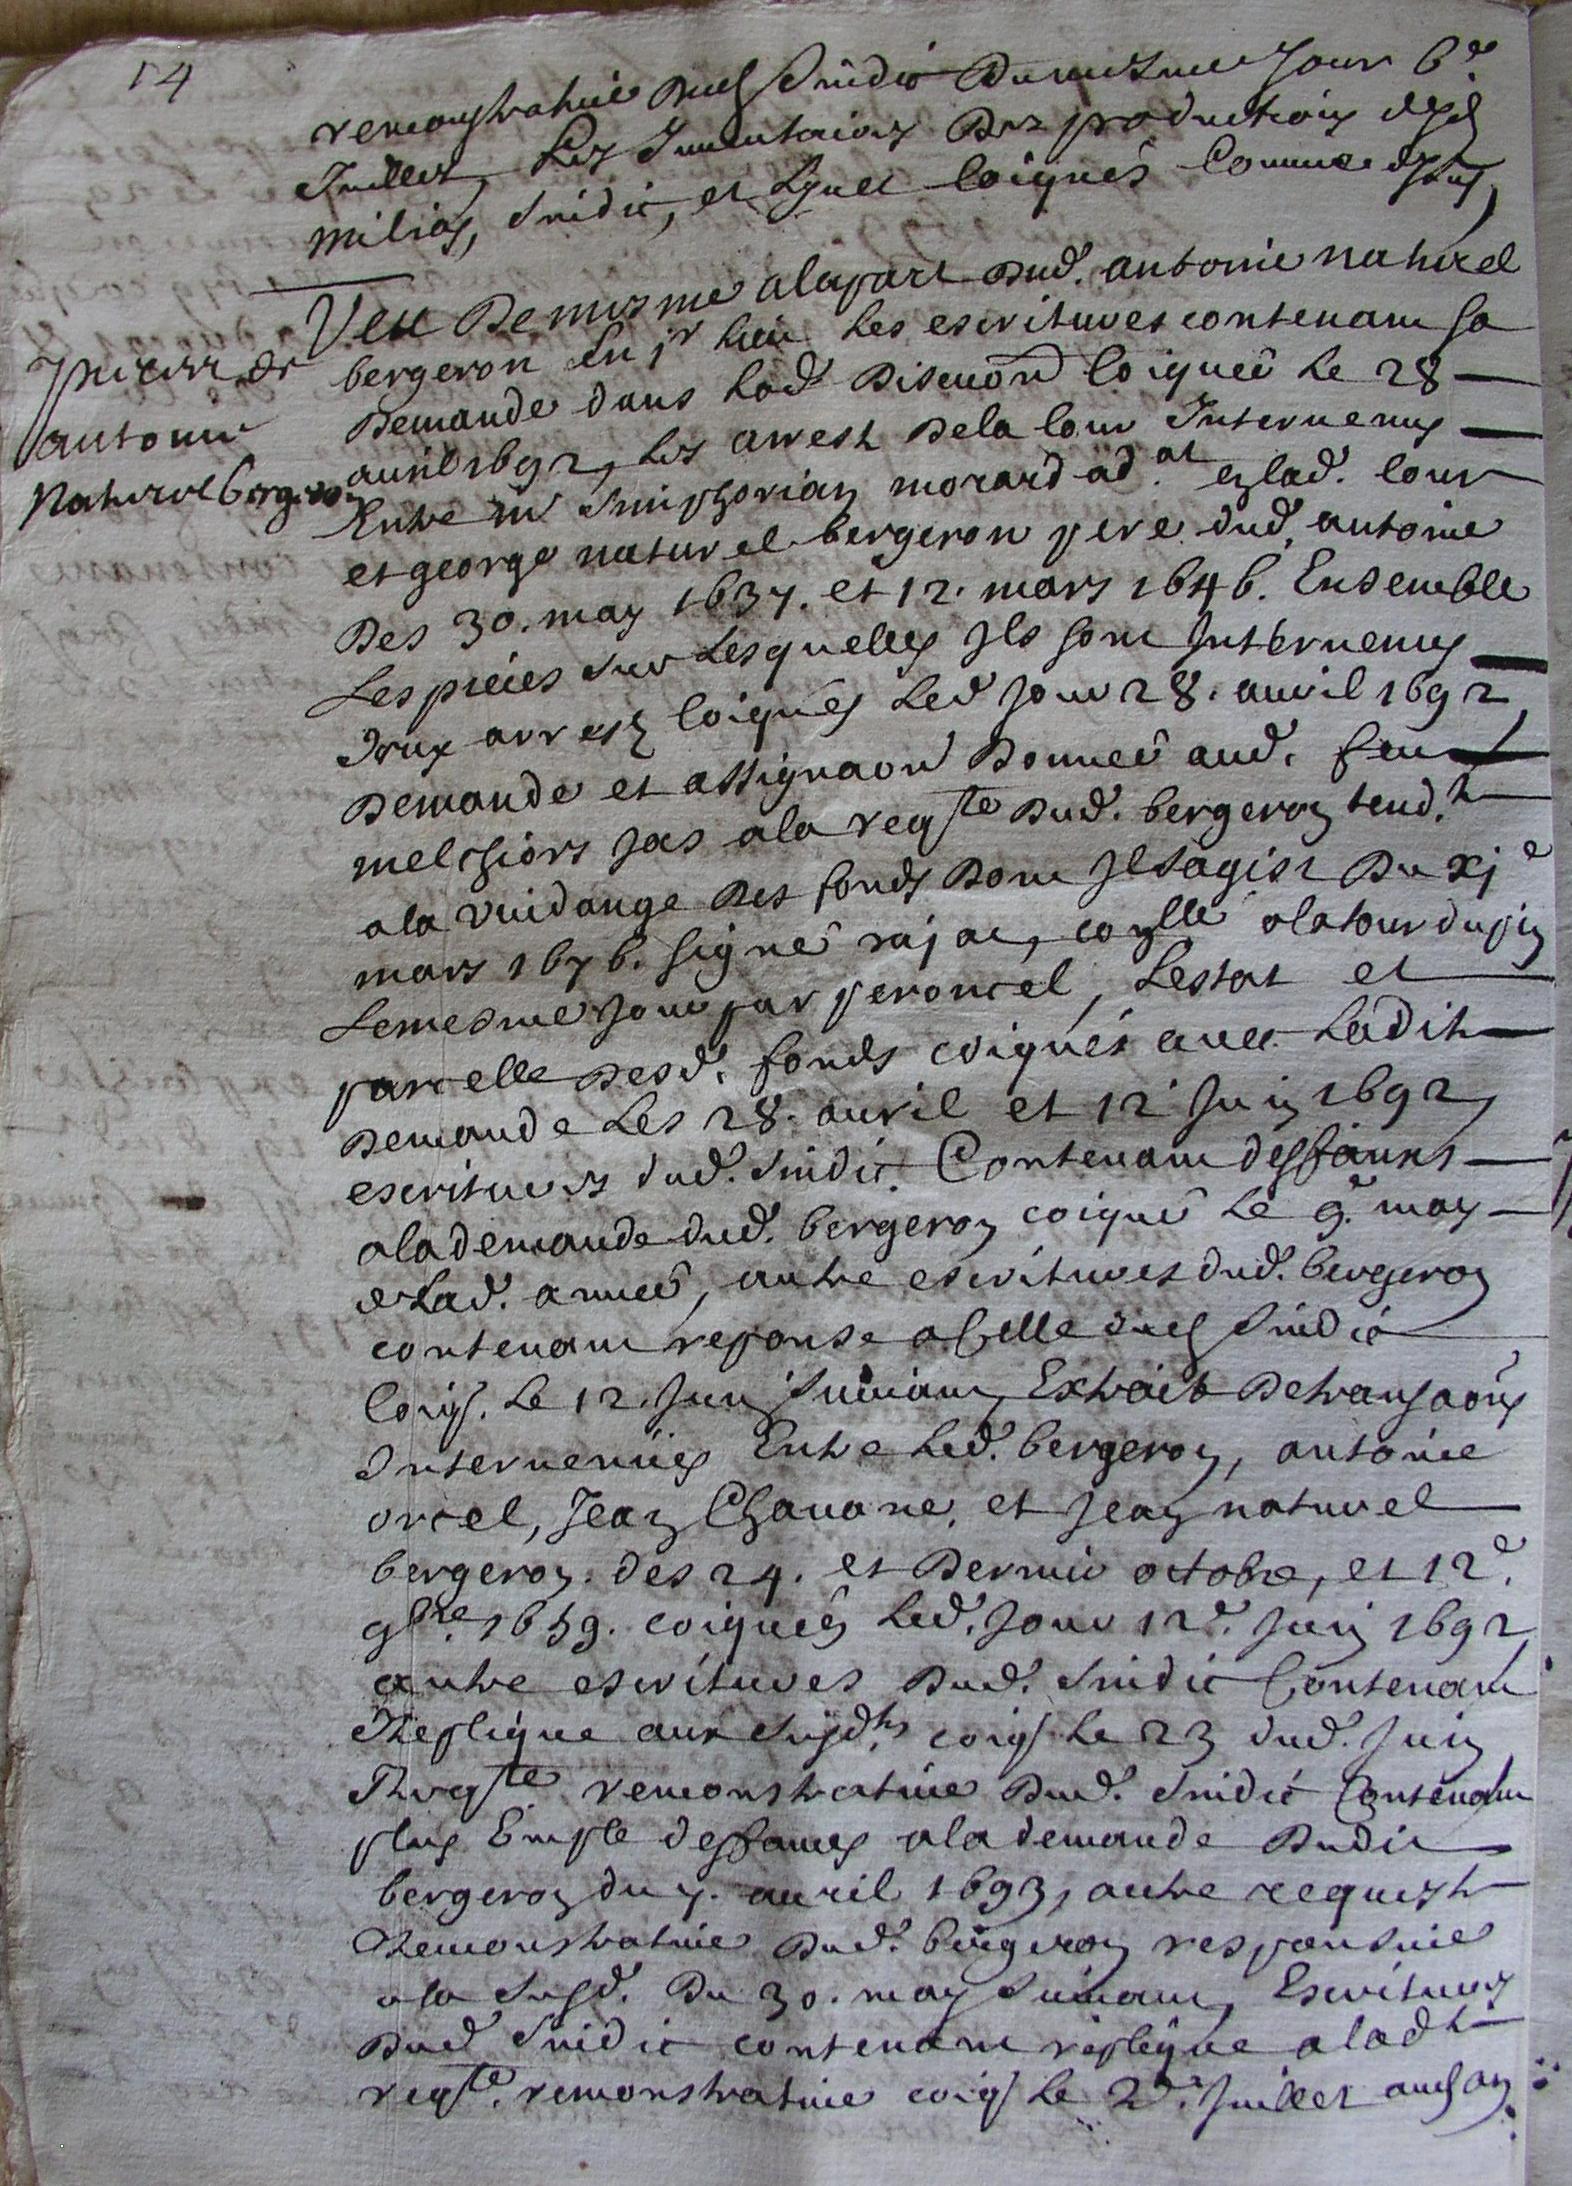 14
remonstrative dud. sindic du mesme jour 6e
Juillet, les Inventaires des productions desd.
milias, sindic, et
Pieces de
antoine
Naturel bergeron
Veu de mesme a la part dud. antoine naturel
bergeron en 1r lieu les escritures contenant sa
demande dans lad. discuon coiquée le 28
avril 1692, les arrest de la Cour Intervenus
Entre me Simphorian morard ad.at en lad. Cour
et george naturel bergeron pere dud. antoine
des 30. may 1637. et 12. mars 1646. Ensemble
Les pieces sur lesquelles Ils sont Intervenus
Iceux arrestz coiqués led. jour 28. avril 1692,
demande et assignaon donnée aud. feu
melchiors jas a la reqste dud. bergeron tend.t
a la vuidange des fonds dont Il sagist du xje
mars 1676. signé rajac, conlle a la tour du pin
Le mesme jour par peroncel, Lestat et
parcelle desd. fonds coiqués avec ladite
demande les 28. avril et 12 Juin 1692,
escritures dud. sindic Contenant deffances
a la demande dud. bergeron coiqué le 9e may
de lad. année, autre escritures dud. bergeron
contenant reponse a Celle dud. sindic
Coiq. le 12. Juin suivant, Extrait de transaons
Intervenües Entre led. bergeron, antoine
orcel, Jean Chavane, et Jean naturel
bergeron. des 24. et dernier octobre, et 12e
9bre 1659. coiqués led. jour 12e. Juin 1692
autre escritures dud. sindic Contenant
Replique aux susd.tes coiq. le 23 dud. Juin
Reqste remonstrative dud. sindic Contenant
plus Emple deffances a la demande dudit
bergeron du 7. avril 1693, autre requeste
Remonstrative dud. bergeron responsive
a la susd. du 30. may suivant, Escritures
dud. sindic contenant replique a lad.te
reqste. remonstrative coiq. le 2e. Juillet aud. an